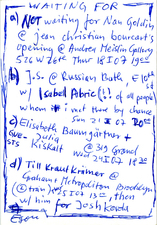 WAITING FOR
a) NOT waiting for Nan Goldin
@ jean christian bourcart's
opening @ Andrea Meislin Gallery
526 W 26th Thur 18 I 07 1900
b) J.S. @ Russian Bath E 10th St
w/ Isabel Abric(!: of all people)
whom I met there by chance
Sun 21 I 07 2000
c) Elisabeth Baumgartner +
Kiskalt @ 319 Grand
Wed 24 I 07 1820
d) Till Krautkrämer @
Graham + Metropolitan Brooklyn
25 I 07 then
w/ him for Josh